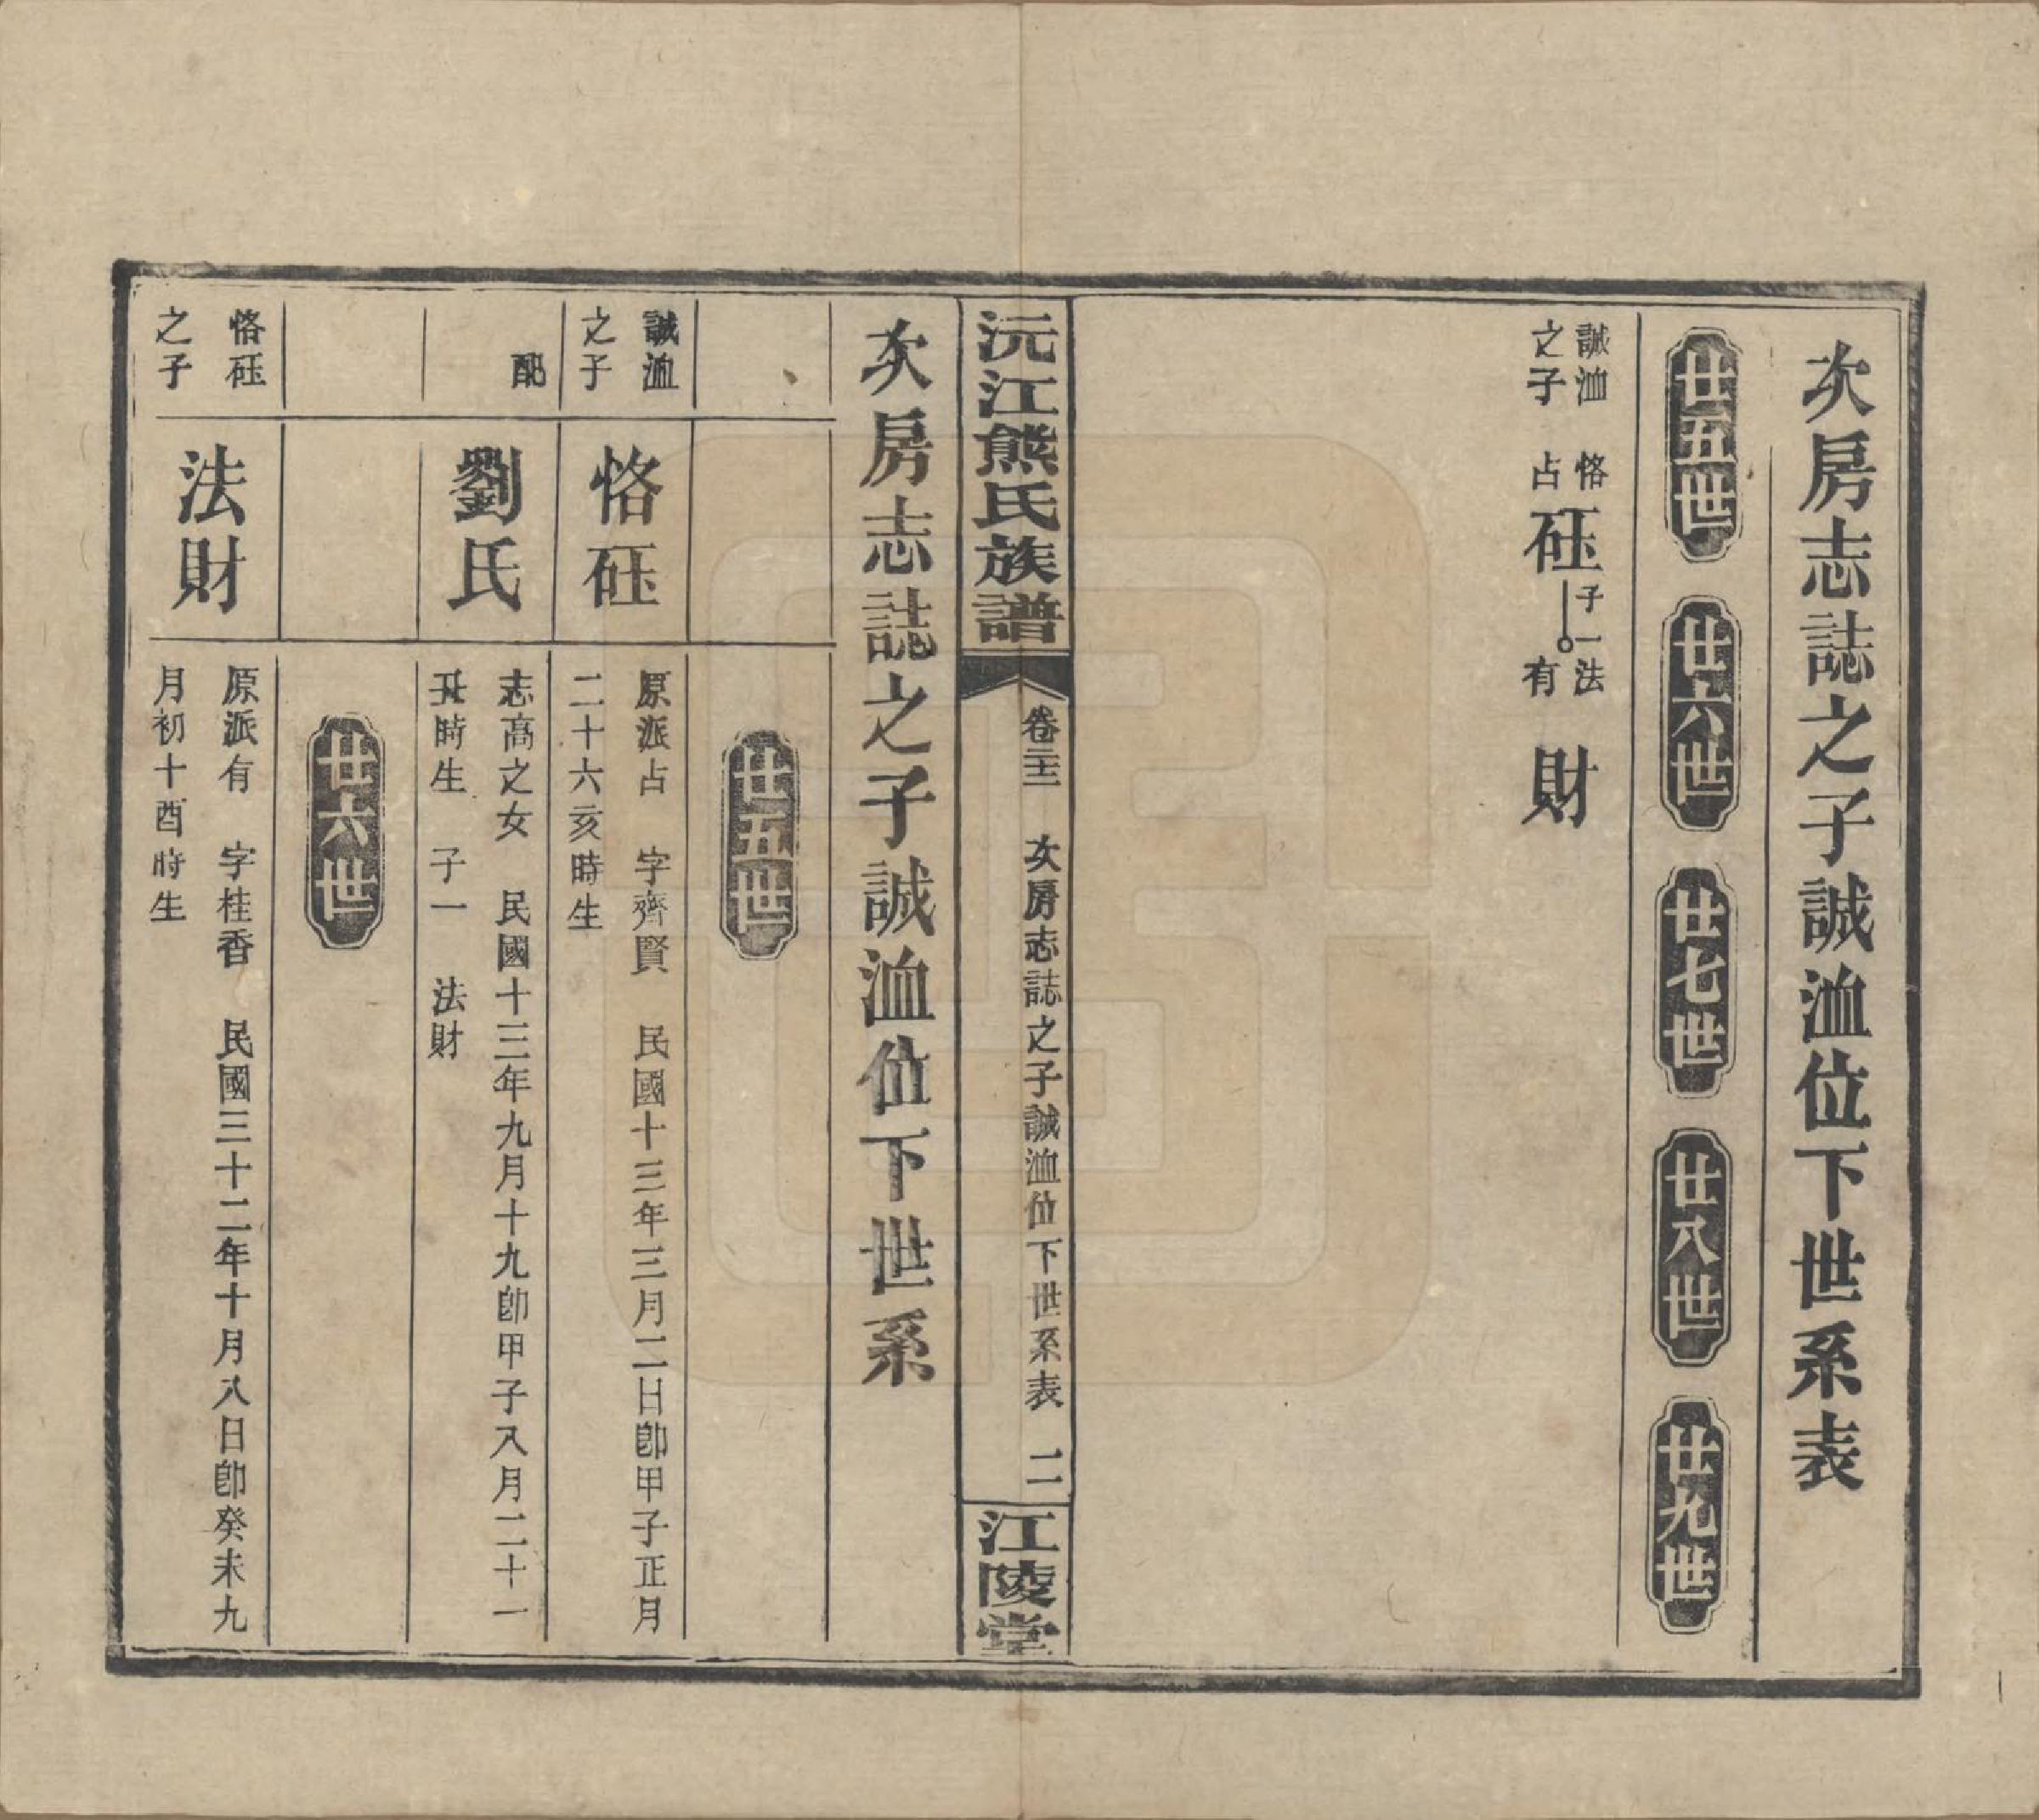 次房志誌之子誠洫位下世系表
廿五世 廿六世 廿七世 廿八世 廿九世
誠洫之子 恪占砡 子一法有 財
沅江熊氏族譜 卷三 次房志誌之子誠洫位下世系表 二 江陵堂
次房志誌之子誠洫位下世系
廿五世
誠洫之子
恪砡
原派占 字齊賢 民國十三年三月二日卽甲子正月
二十六亥時生
配
劉氏
志高之女 民國十三年九月十九卽甲子八月二十一
丑時生 子一 法財
廿六世
恪砡之子
法財
原派有 字桂香 民國三十二年十月八日卽癸未九
月初十酉時生